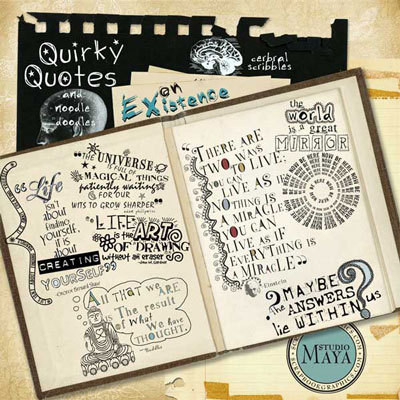 Quirky
Quotes
and
noodle
doodles
cerbral
scribbles
on
EXistence
THE UNIVERSE
IS FULL OF
MAGICAL THINGS
patiently waiting
FOR OUR
WITS TO GROW SHARPER
Life
isn't
about
finding
yourself,
it is
about
CREATING
YOURSELF
George Bernard Shaw
LIFE
is the ART
OF DRAWING
without an eraser
John W. Gardner
All that WE ARE
is The result
of what
We have
THOUGHT.
Buddha
THERE ARE
TWO WAYS
TO LIVE:
YOU CAN
LIVE AS IF
NOTHING IS
A MIRACLE
YOU CAN
LIVE AS IF
EVERYTHING IS
A MIRACLE
Einstein
the
world
is a great
MIRROR
BE HERE NOW
MAYBE
The ANSWERS
lie WITHIN us
?
STUDIO
MAYA
SCRAPBOOKGRAPHICS.COM